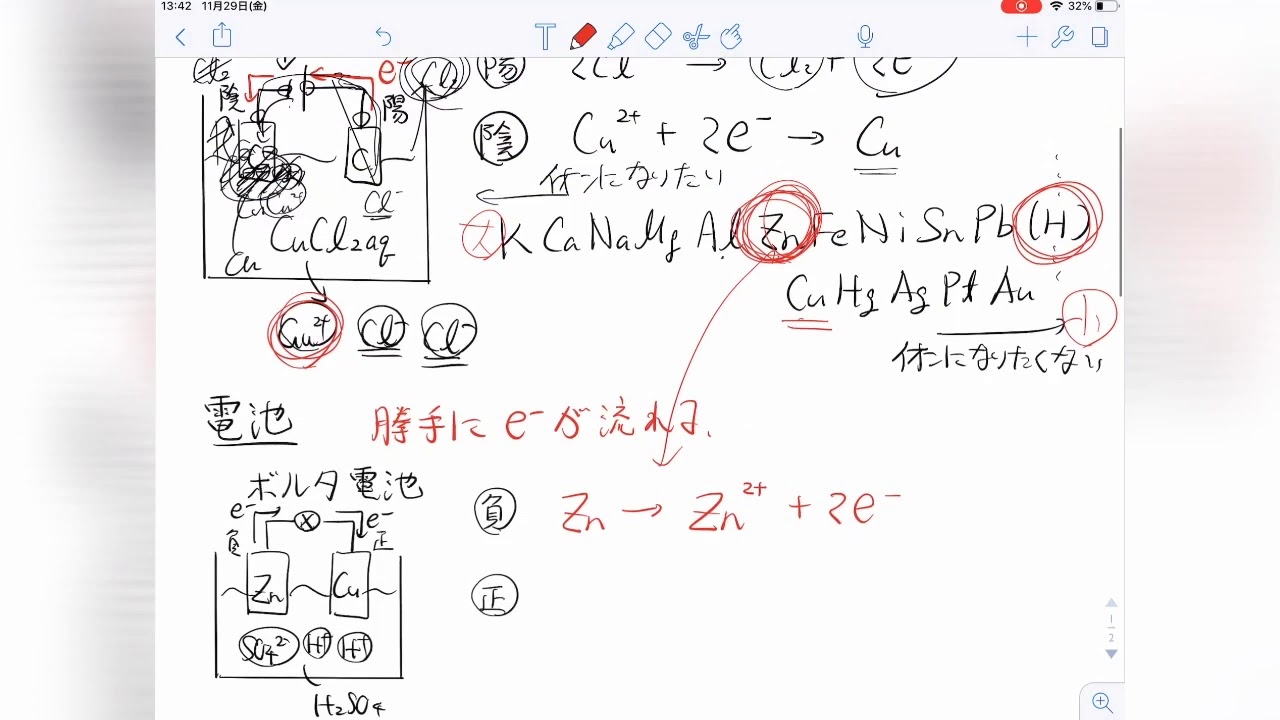 13:42 11月29日(金)
32%
T
e⁻
陰
陽
C
Cl⁻
CuCl₂aq
Cu
Cu²⁺ Cl⁻ Cl⁻
陽 2Cl⁻ → Cl₂ + 2e⁻
陰 Cu²⁺ + 2e⁻ → Cu
イオンになりたい
大 K Ca Na Mg Al Zn Fe Ni Sn Pb (H)
Cu Hg Ag Pt Au 小
イオンになりたくない
電池 勝手にe⁻が流れる.
ボルタ電池
e⁻ e⁻
負 正
Zn Cu
SO₄²⁻ H⁺ H⁺
H₂SO₄
負 Zn → Zn²⁺ + 2e⁻
正
1
2